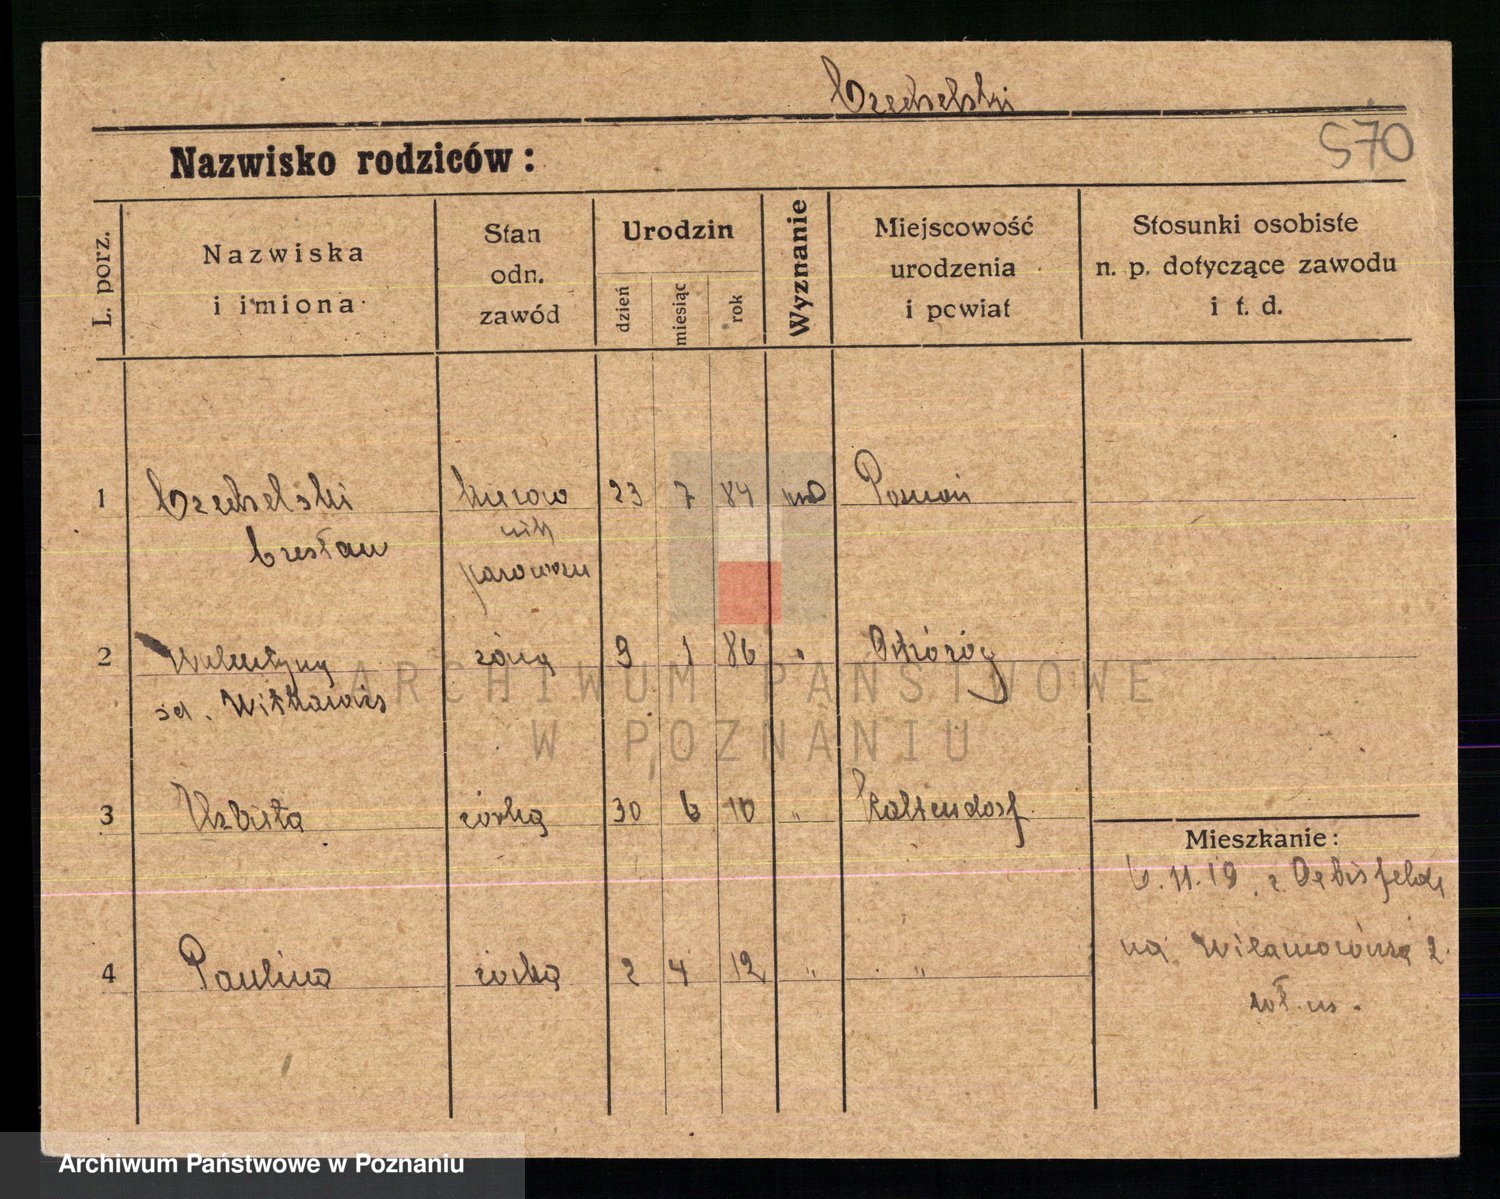 Czechelski
Nazwisko rodziców:
S70
L. porz.
Nazwiska
i imiona
Stan
odn.
zawód
Urodzin
dzień
miesiąc
rok
Wyznanie
Miejscowość
urodzenia
i powiat
Stosunki osobiste
n. p. dotyczące zawodu
i t. d.
1 Czechelski kierow 23 7 84 Poznań
Czesław nik
parowozu
2 Walentyna żona 9 1 86 "
zd. Witkowicz
3 Elżbieta córka 30 6 10 " Kaltendorf
Mieszkanie:
6.11.19. z Oebisfelde
4 Paulina córka 2 4 12 " "
na 2.
ARCHIWUM PAŃSTWOWE
W POZNANIU
Archiwum Państwowe w Poznaniu